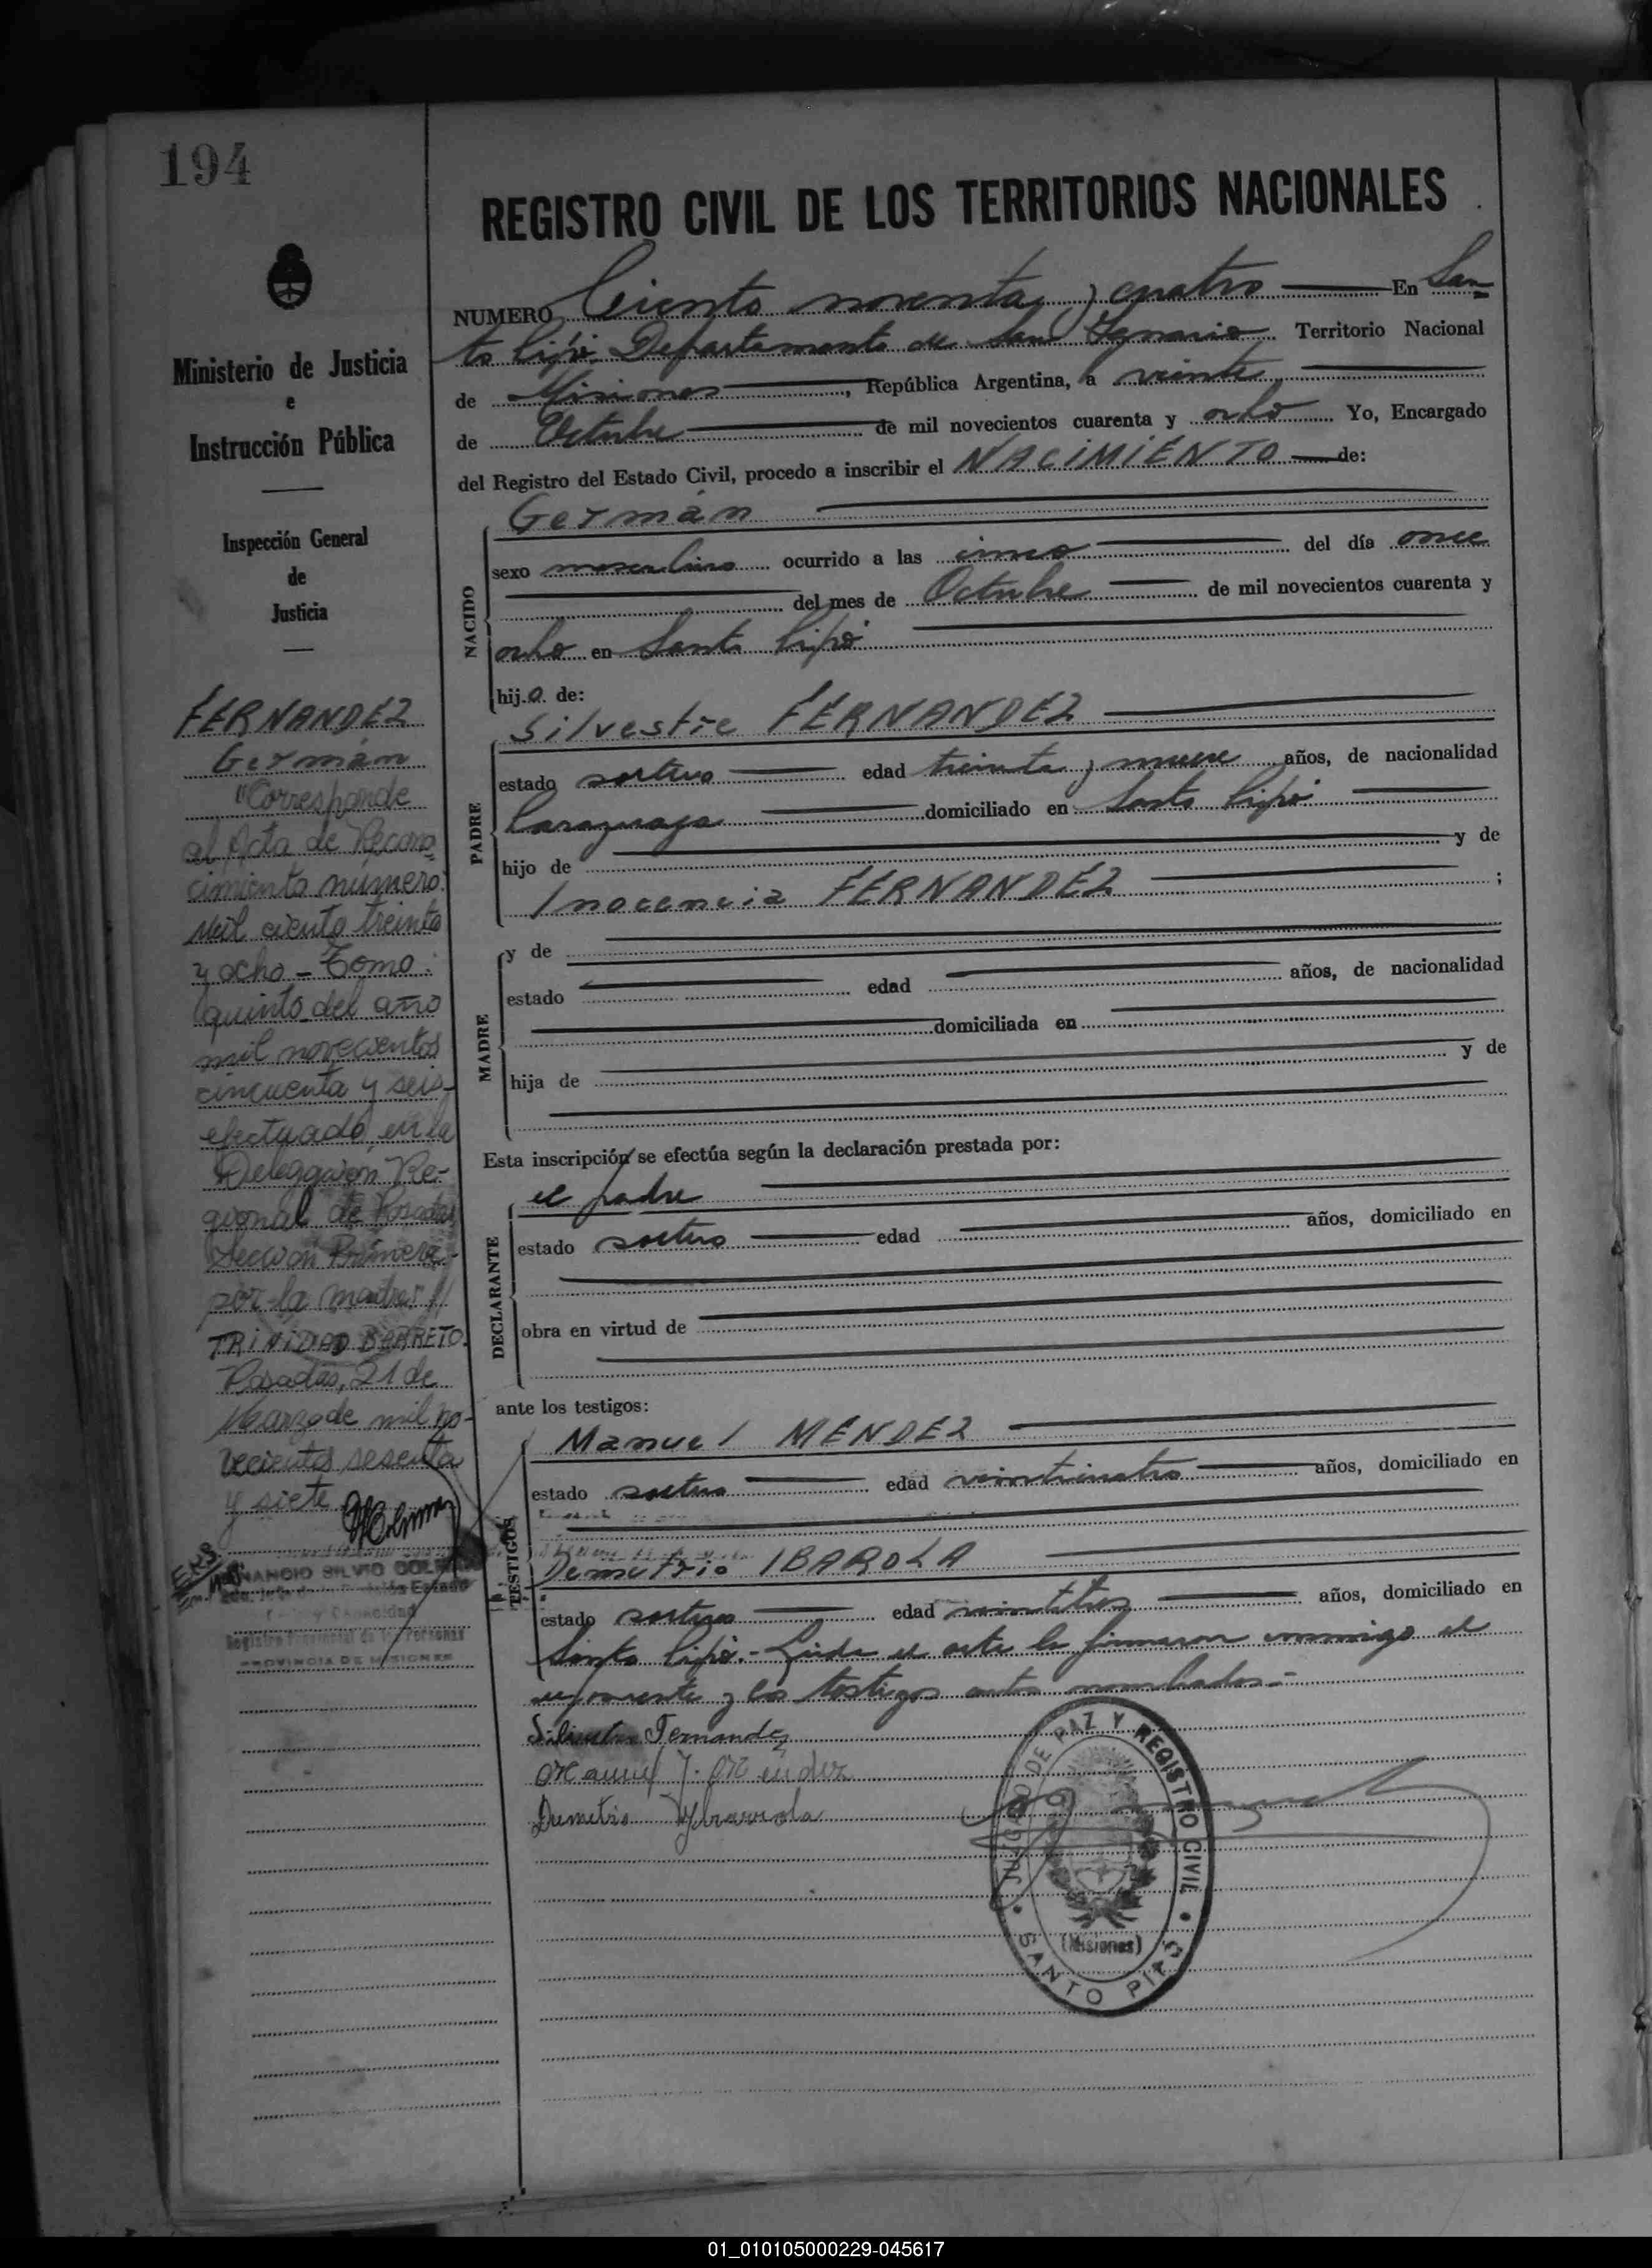 194
Ministerio de Justicia
e
Instrucción Pública
Inspección General
de
Justicia
FERNANDEZ
Germán
"Corresponde
al Acta de Recono-
cimiento número:
Mil ciento treinta
y ocho - Tomo:
quinto del año
mil novecientos
cincuenta y seis-
efectuado en la
Delegación Re-
gional de Posadas
Sección Primera-
por la madre"
TRINIDAD BARRETO.
Posadas, 21 de
Marzo de mil no-
vecientos sesenta
y siete
SILVIO
Registro Provincial de las Personas
PROVINCIA DE MISIONES
REGISTRO CIVIL DE LOS TERRITORIOS NACIONALES
NUMERO Ciento noventa y cuatro En San
to Pipó Departamento de San Ignacio Territorio Nacional
de Misiones, República Argentina, a veinte
de Octubre de mil novecientos cuarenta y ocho Yo, Encargado
del Registro del Estado Civil, procedo a inscribir el NACIMIENTO de:
Germán
NACIDO
sexo masculino ocurrido a las cinco del día once
del mes de Octubre de mil novecientos cuarenta y
ocho en Santo Pipó
hijo de:
Silvestre FERNANDEZ
PADRE
estado soltero edad treinta y nueve años, de nacionalidad
Paraguaya domiciliado en Santo Pipó
hijo de y de
Inocencia FERNANDEZ ;
MADRE
y de
estado edad años, de nacionalidad
domiciliada en
hija de y de
Esta inscripción se efectúa según la declaración prestada por:
el padre
DECLARANTE
estado soltero edad años, domiciliado en
obra en virtud de
ante los testigos:
Manuel MENDEZ
TESTIGOS
estado soltero edad veinticuatro años, domiciliado en
Demetrio IBAROLA
estado soltero edad veintitres años, domiciliado en
Santo Pipó.- Leida el acta la firmaron conmigo el
exponente y los testigos antes nombrados.=
Silvestre Fernandez
Manuel J. Mendez
Demetrio Ybarrola
JUZGADO DE PAZ Y REGISTRO CIVIL
(Misiones)
SANTO PIPÓ
01_010105000229-045617